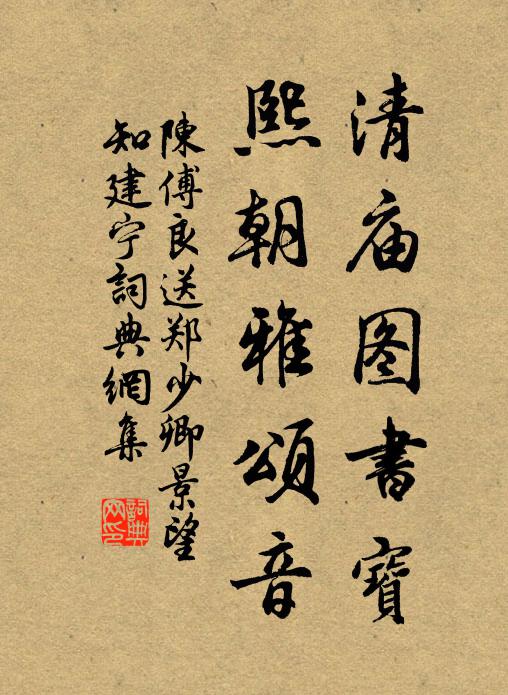 清庙图書寶
熙朝雅頌音
陳傅良送郑少卿景望
知建宁詞典網集
詞典
网印